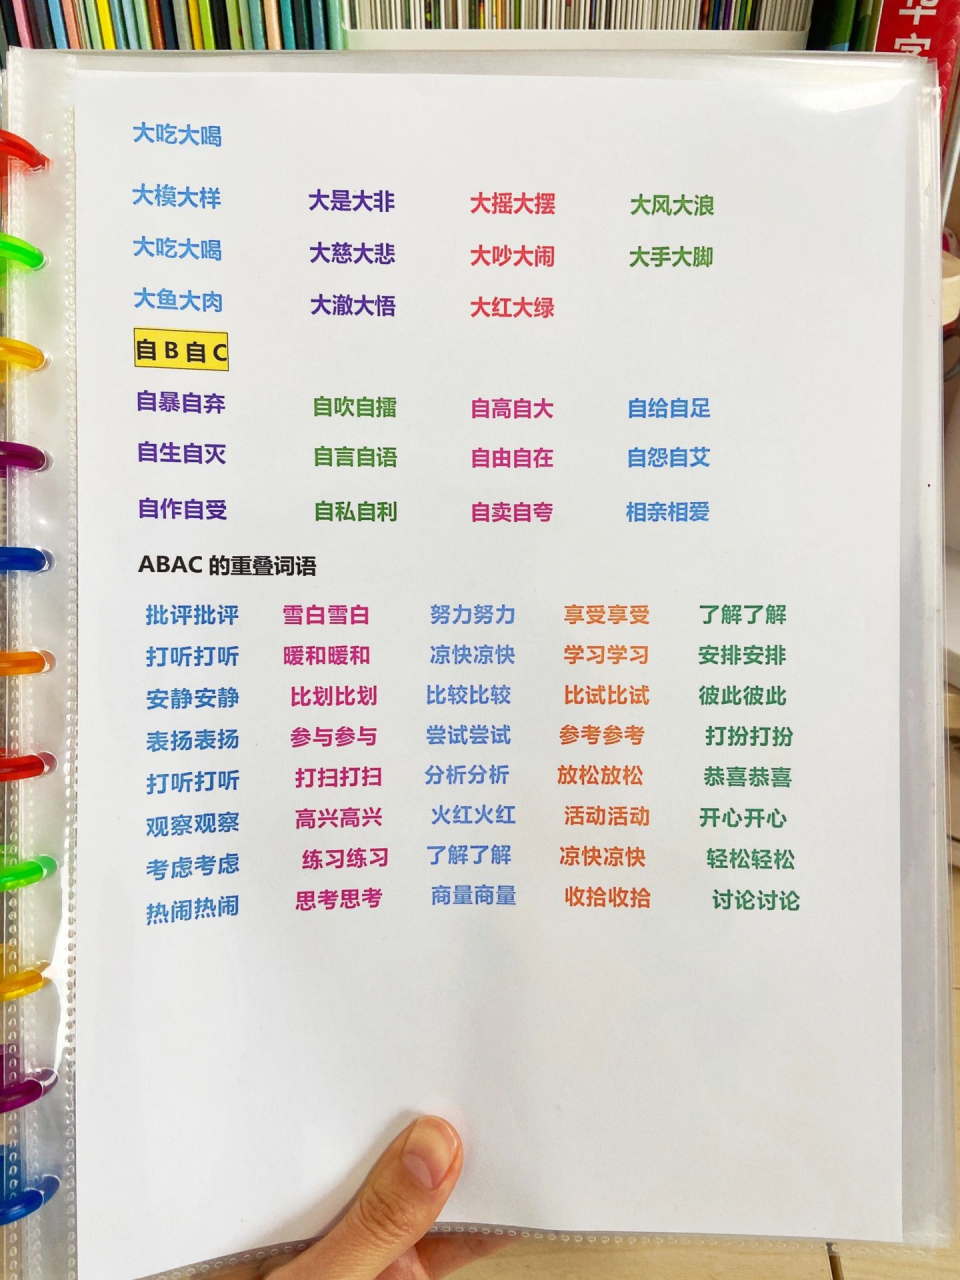 华字
大吃大喝
大模大样 大是大非 大摇大摆 大风大浪
大吃大喝 大慈大悲 大吵大闹 大手大脚
大鱼大肉 大澈大悟 大红大绿
自 B 自 C
自暴自弃 自吹自擂 自高自大 自给自足
自生自灭 自言自语 自由自在 自怨自艾
自作自受 自私自利 自卖自夸 相亲相爱
ABAC 的重叠词语
批评批评 雪白雪白 努力努力 享受享受 了解了解
打听打听 暖和暖和 凉快凉快 学习学习 安排安排
安静安静 比划比划 比较比较 比试比试 彼此彼此
表扬表扬 参与参与 尝试尝试 参考参考 打扮打扮
打听打听 打扫打扫 分析分析 放松放松 恭喜恭喜
观察观察 高兴高兴 火红火红 活动活动 开心开心
考虑考虑 练习练习 了解了解 凉快凉快 轻松轻松
热闹热闹 思考思考 商量商量 收拾收拾 讨论讨论